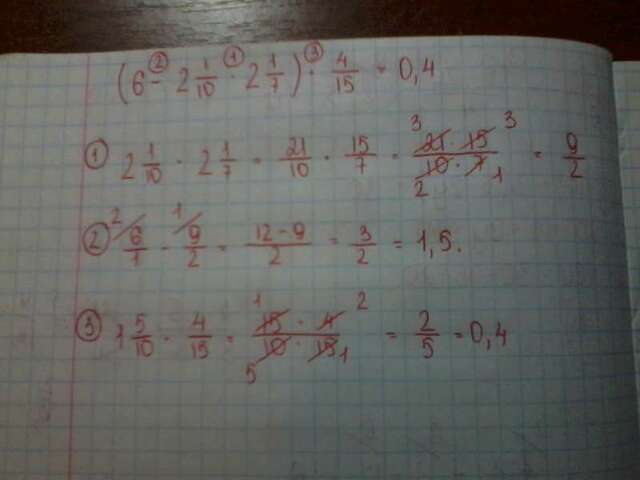 (6 -② 2 1/10 ·① 2 1/7) ·③ 4/15 = 0,4
① 2 1/10 · 2 1/7 = 21/10 · 15/7 = 3 21 · 15 3 / 2 10 · 7 1 = 9/2
② 2/ 6/1 - 1/ 9/2 = 12-9/2 = 3/2 = 1,5.
③ 1 5/10 · 4/15 = 1 15 · 4 2 / 5 10 · 15 1 = 2/5 = 0,4